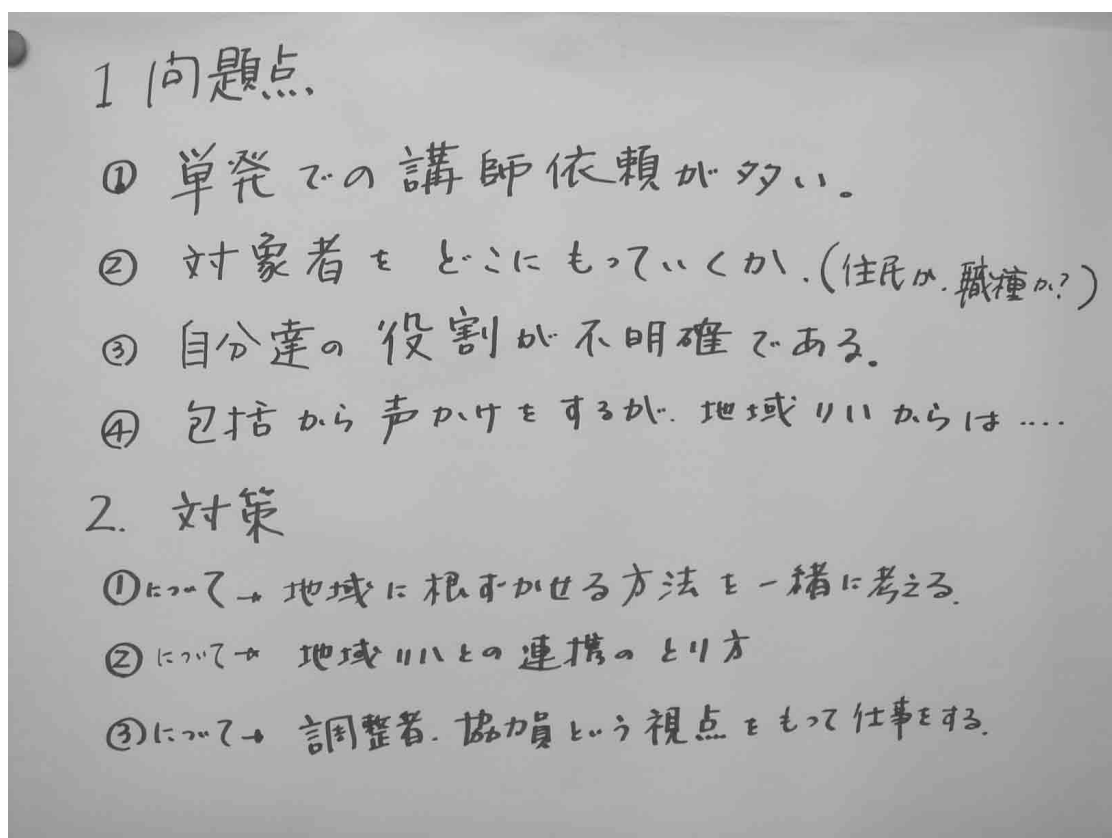 1 問題点
① 単発での講師依頼が多い。
② 対象者をどこにもっていくか.(住民か.職種か?)
③ 自分達の役割が不明確である。
④ 包括から声かけをするが.地域リハからは‥‥
2. 対策
①について→地域に根ずかせる方法を一緒に考える.
②について→地域リハとの連携のとり方
③について→調整者.協力員という視点をもって仕事をする.